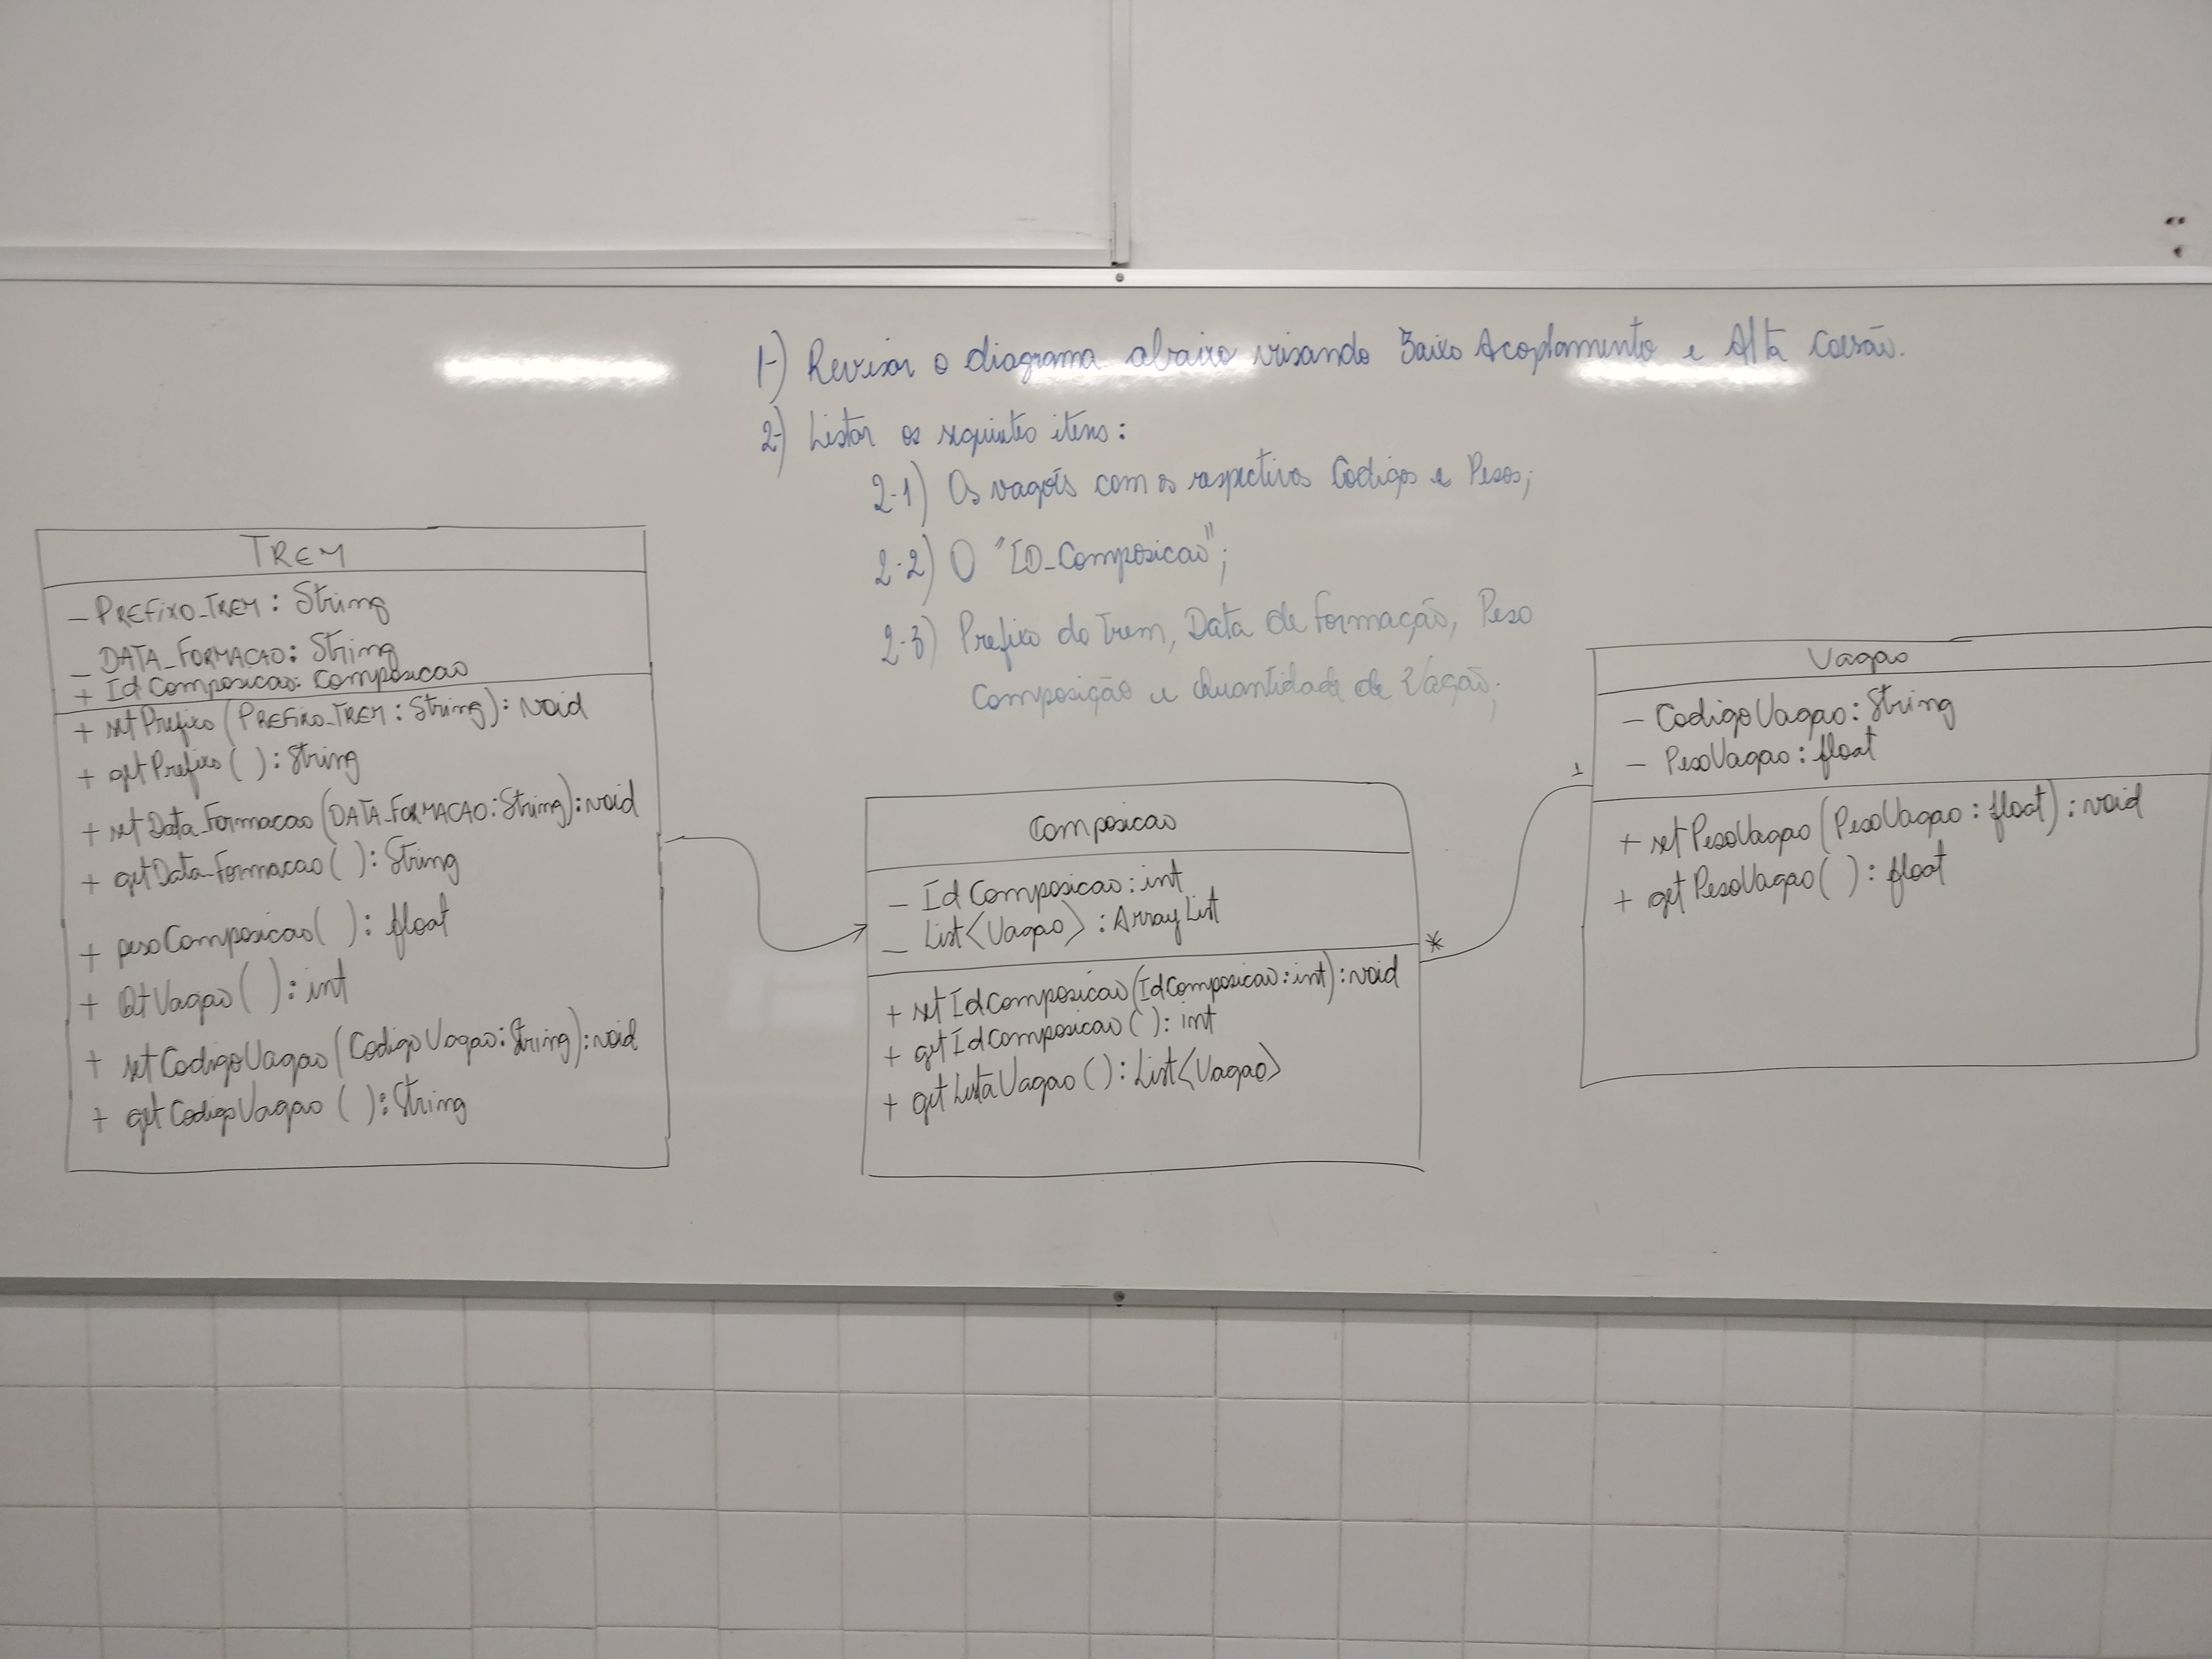 1-) Revisar o diagrama abaixo visando Baixo Acoplamento e Alta Coesão.
2-) Listar os seguintes itens:
2-1) Os vagões com os respectivos Codigos e Pesos;
2-2) O "ID_Composicao";
2-3) Prefixo do Trem, Data de Formação, Peso
Composição e Quantidade de Vagão;
TREM
- PREFIXO_TREM: String
- DATA_FORMACAO: String
+ IdComposicao: Composicao
+ setPrefixo (PREFIXO_TREM: String): void
+ getPrefixo ( ): String
+ setData_Formacao (DATA_FORMACAO: String): void
+ getData_Formacao ( ): String
+ pesoComposicao( ): float
+ QtVagao ( ): int
+ setCodigoVagao (CodigoVagao: String): void
+ getCodigoVagao ( ): String
Composicao
- IdComposicao: int
- List<Vagao> : ArrayList
+ setIdComposicao (IdComposicao: int): void
+ getIdComposicao ( ): int
+ getListaVagao ( ): List<Vagao>
*
1
Vagao
- CodigoVagao: String
- PesoVagao: float
+ setPesoVagao (PesoVagao: float): void
+ getPesoVagao ( ): float